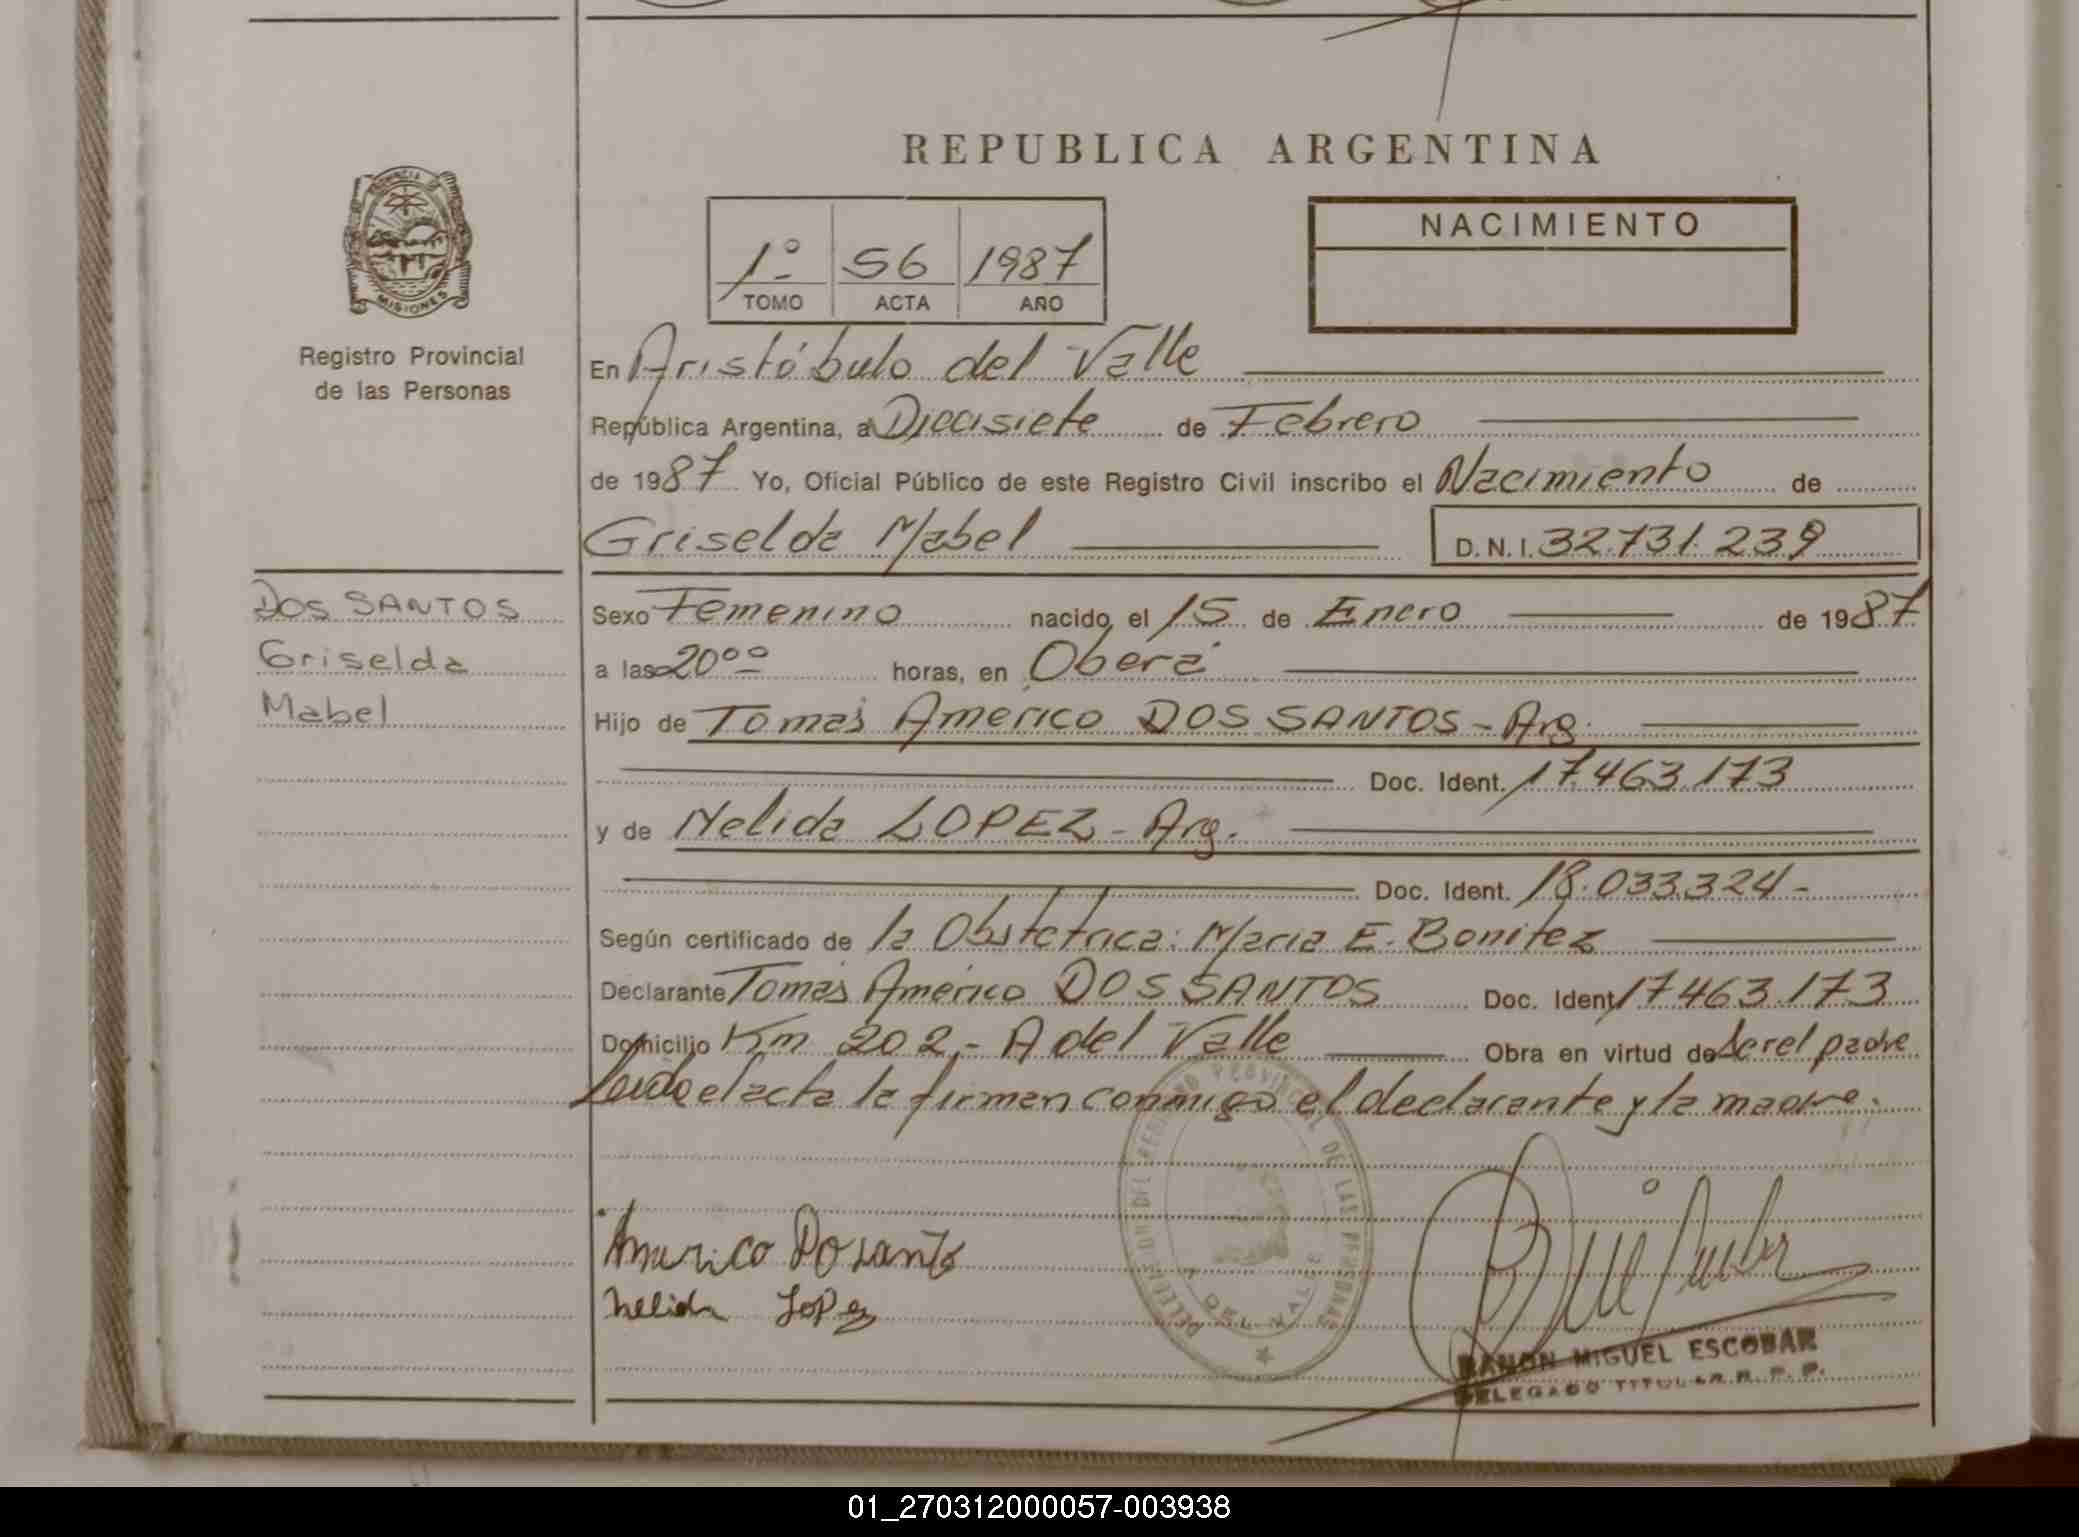 REPUBLICA ARGENTINA
PROVINCIA DE
MISIONES
Registro Provincial
de las Personas
1º 56 1987
TOMO ACTA AÑO
NACIMIENTO
En Aristóbulo del Valle
República Argentina, a Diecisiete de Febrero
de 1987 Yo, Oficial Público de este Registro Civil inscribo el Nacimiento de
Griselda Mabel D.N.I. 32.731.239
DOS SANTOS
Griselda
Mabel
Sexo Femenino nacido el 15 de Enero de 1987
a las 20oo horas, en Oberá
Hijo de Tomás Américo DOS SANTOS - Arg.
Doc. Ident. 17.463.173
y de Nelida LOPEZ - Arg.
Doc. Ident. 18.033.324-
Según certificado de la Obstetrica: Maria E. Bonitez
Declarante Tomás Américo DOS SANTOS Doc. Ident. 17463.173
Domicilio Km 202 - A del Valle Obra en virtud de Ser el padre
Leida el acta la firman conmigo el declarante y la madre.
DELEGACION DEL REGISTRO PROVINCIAL DE LAS PERSONAS
A. DEL VALLE
Americo Dosanto
nelida Lopez
RAMON MIGUEL ESCOBAR
DELEGADO TITULAR R. P. P.
01_270312000057-003938